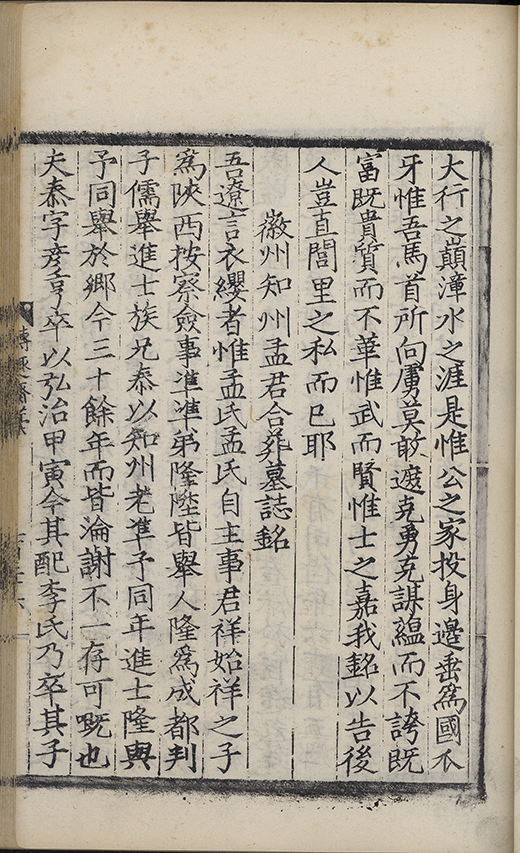 大行之巔漳水之涯是惟公之家投身邊垂爲國爪
牙惟吾馬首所向虜莫敢遮克勇克謀蘊而不誇既
富既貴質而不華惟武而賢惟士之嘉我銘以告後
人豈直閭里之私而已耶
徽州知州孟君合葬墓誌銘
吾遼言衣纓者惟孟氏孟氏自主事君祥始祥之子
爲陝西按察僉事準準弟隆陞皆舉人隆爲成都判
子儒舉進士族兄泰以知州老準予同年進士隆與
予同舉於鄉今三十餘年而皆淪謝不一存可嘅也
夫泰字彥亨卒以弘治甲寅今其配李氏乃卒其子